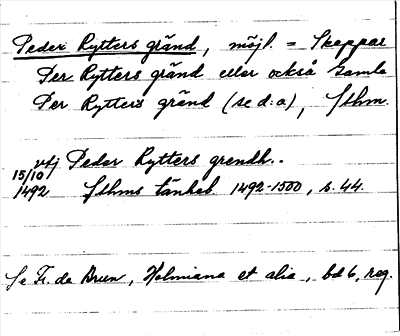 Peder Rytters gränd, möjl. = Skeppar
Per Rytters gränd eller också Gamla
Per Rytters gränd (se d:o), Sthm.
vtj Peder Rytters grendh..
15/10
1492 Sthms tänkeb. 1492-1500, s. 44.
Se Fr. de Brun, Holmiana et alia, bd 6, reg.